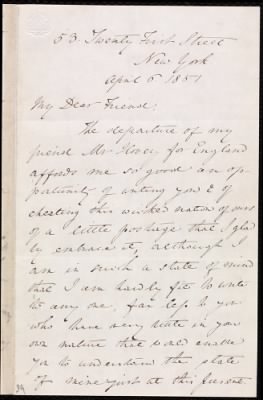 53. Twenty First Street
New York
April 6 1851
My Dear Friend:
The departure of my
friend Mr Hovey for England
affords me so good an op-
portunity of writing you & of
cheating this wicked nation of ours
of a little postage that I glad
ly embrace it, although I
am in such a state of mind
that I am hardly fit to write
to any one, far less to you
who have very little in your
own nature that would enable
you to understand the state
of mine just at this present.